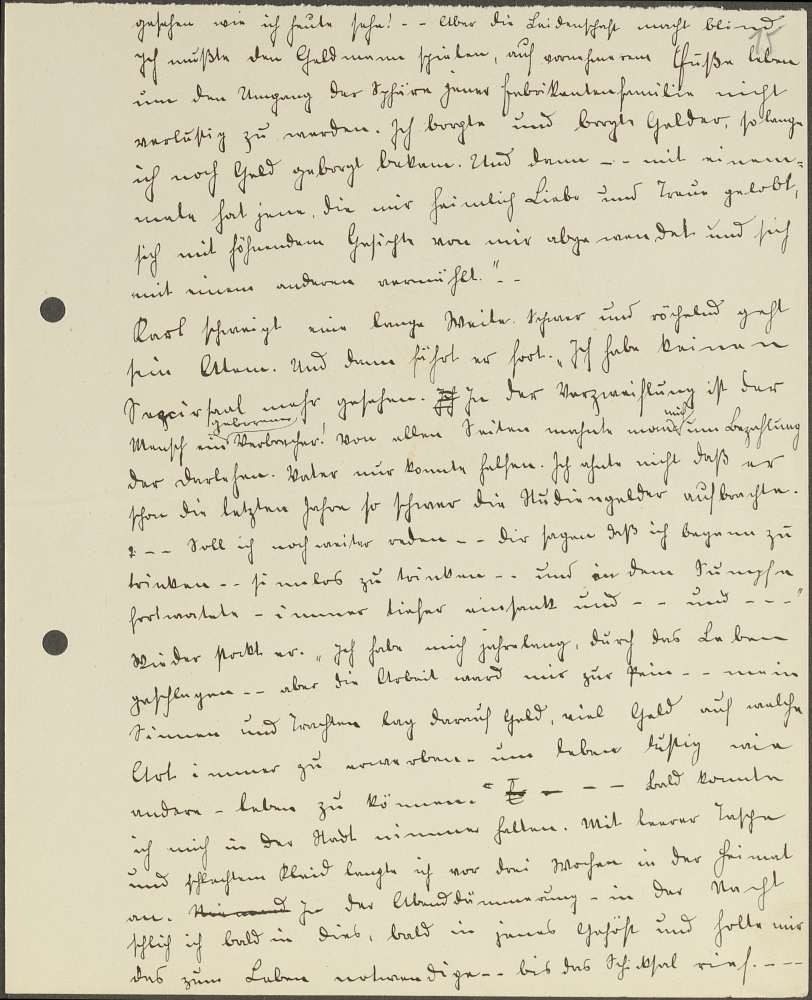 15
gesehen wie ich heute sehe! - - Aber die Leidenschaft macht blind
Ich mußte den Geldmann spielen, auf vornehmerem Fuße leben
um den Umgang der Sphäre jener Fabrikantenfamilie nicht
verlustig zu werden. Ich borgte und borgte Gelder, solange
ich noch Geld geborgt bekam. Und dann - - mit einem=
male hat jene, die mir heimlich Liebe und Treue gelobt,
sich mit höhnendem Gesichte von mir abgewendet und sich
mit einem anderen vermählt." - -
Karl schweigt eine lange Weile. Schwer und röchelnd geht
sein Atem. Und dann fährt er fort. „Ich habe keinen
Seziersaal mehr gesehen. Ich In der Verzweiflung ist der
geborener mich
Mensch ein Verbrecher! Von allen Seiten mahnte man um Bezahlung
der Darlehen. Vater nur konnte helfen. Ich ahnte nicht daß er
schon die letzten Jahre so schwer die Studiengelder aufbrachte.
- - Soll ich noch weiter reden - - Dir sagen daß ich begann zu
trinken - - sinnlos zu trinken - - und in dem Sumpfe
fortwatete - immer tiefer einsank und - - und - - -"
Wieder stockt er. „Ich habe mich jahrelang, durch das Leben
geschlagen - - aber die Arbeit ward mir zur Pein - - mein
Sinnen und Trachten lag darauf Geld, viel Geld auf welche
Art immer zu erwerben - um leben lustig wie
andere - leben zu können. - - - Bald konnte
ich mich in der Stadt nimmer halten. Mit leerer Tasche
und schlechtem Kleid langte ich vor drei Wochen in der Heimat
an. Niemand In der Abenddämmerung - in der Nacht
schlich ich bald in dies, bald in jenes Gehöft und holte mir
das zum Leben notwendige - - bis das Schicksal rief. - - -